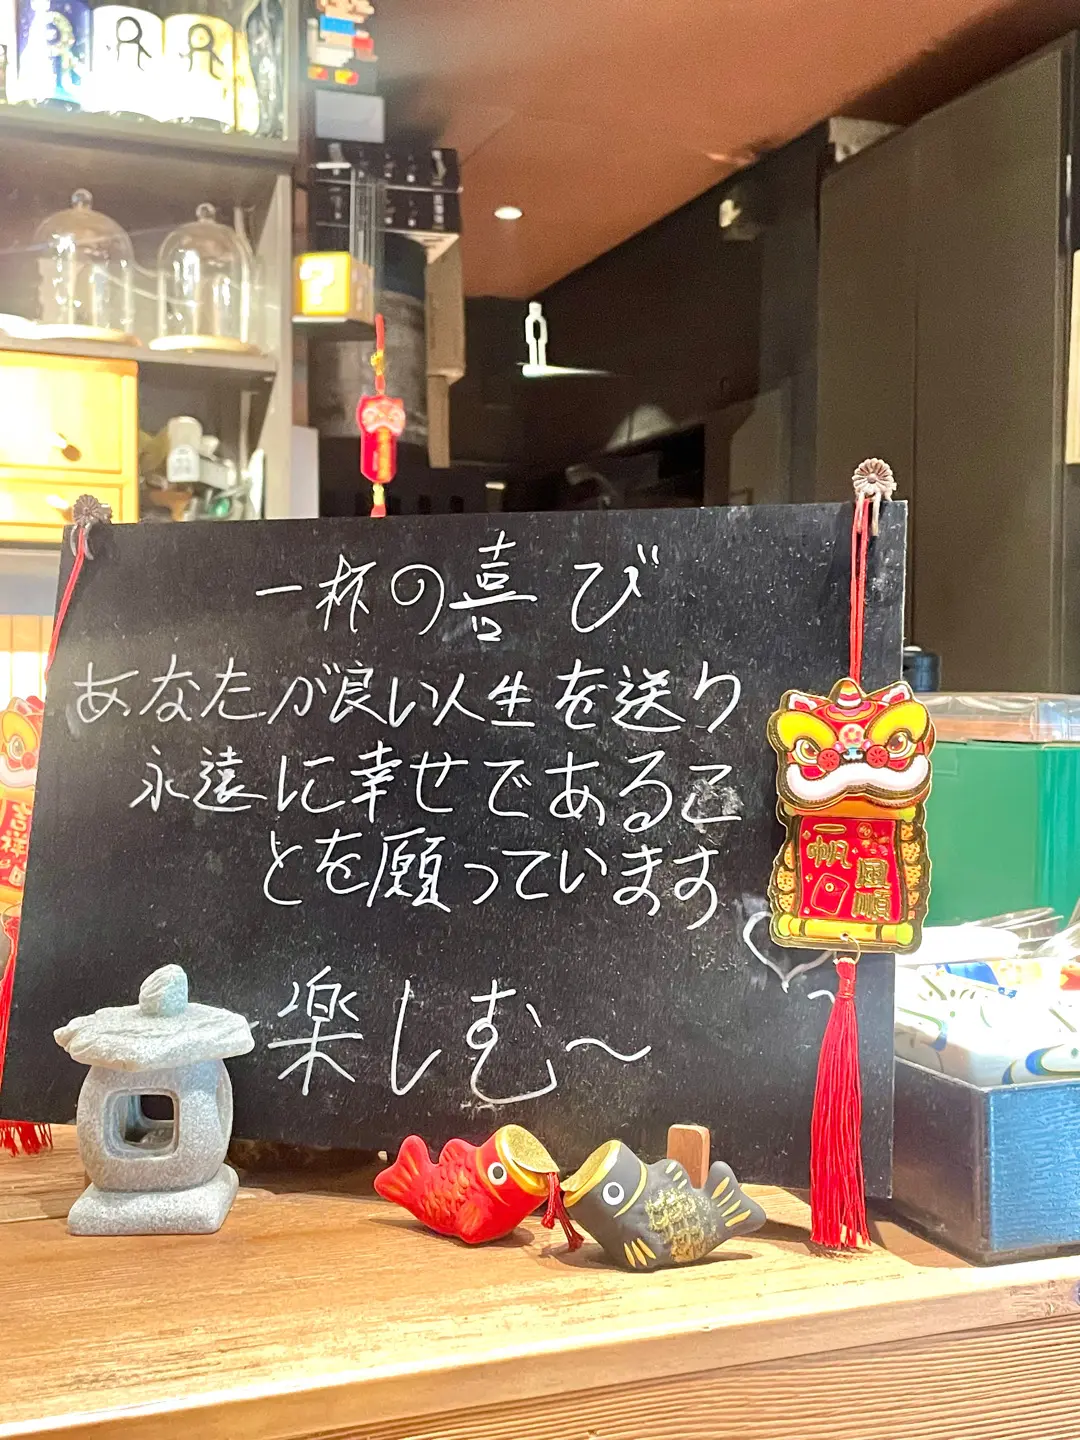 一杯の喜び
あなたが良い人生を送り
永遠に幸せであるこ
とを願っています
楽しむ〜
一帆
風順
?